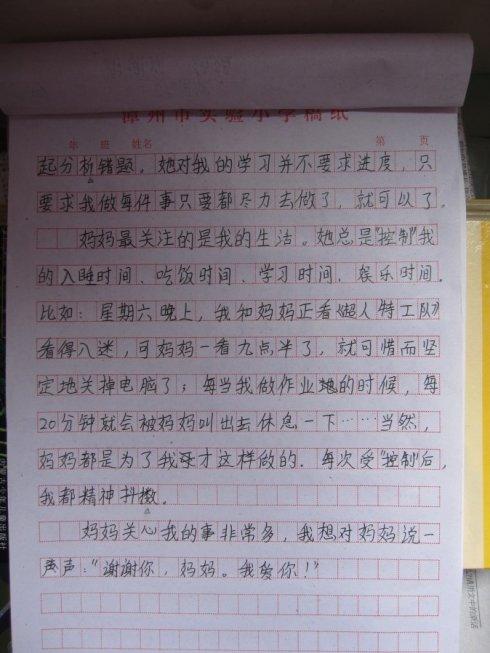 漳州市实验小学稿纸
年 班 姓名 第 页
起分析错题。她对我的学习并不要求进度，只
要求我做每件事只要都尽力去做了，就可以了。
妈妈最关注的是我的生活。她总是“控制”我
的入睡时间、吃饭时间、学习时间、娱乐时间。
比如：星期六晚上，我和妈妈正看《超人特工队》
看得入迷，可妈妈一看九点半了，就可惜而坚
定地关掉电脑了；每当我做作业的时候，每
20分钟就会被妈妈叫出去休息一下……当然，
妈妈都是为了我才这样做的。每次受“控制”后，
我都精神抖擞。
妈妈关心我的事非常多，我想对妈妈说一
声声：“谢谢你，妈妈。我爱你！”
少年儿童出版社